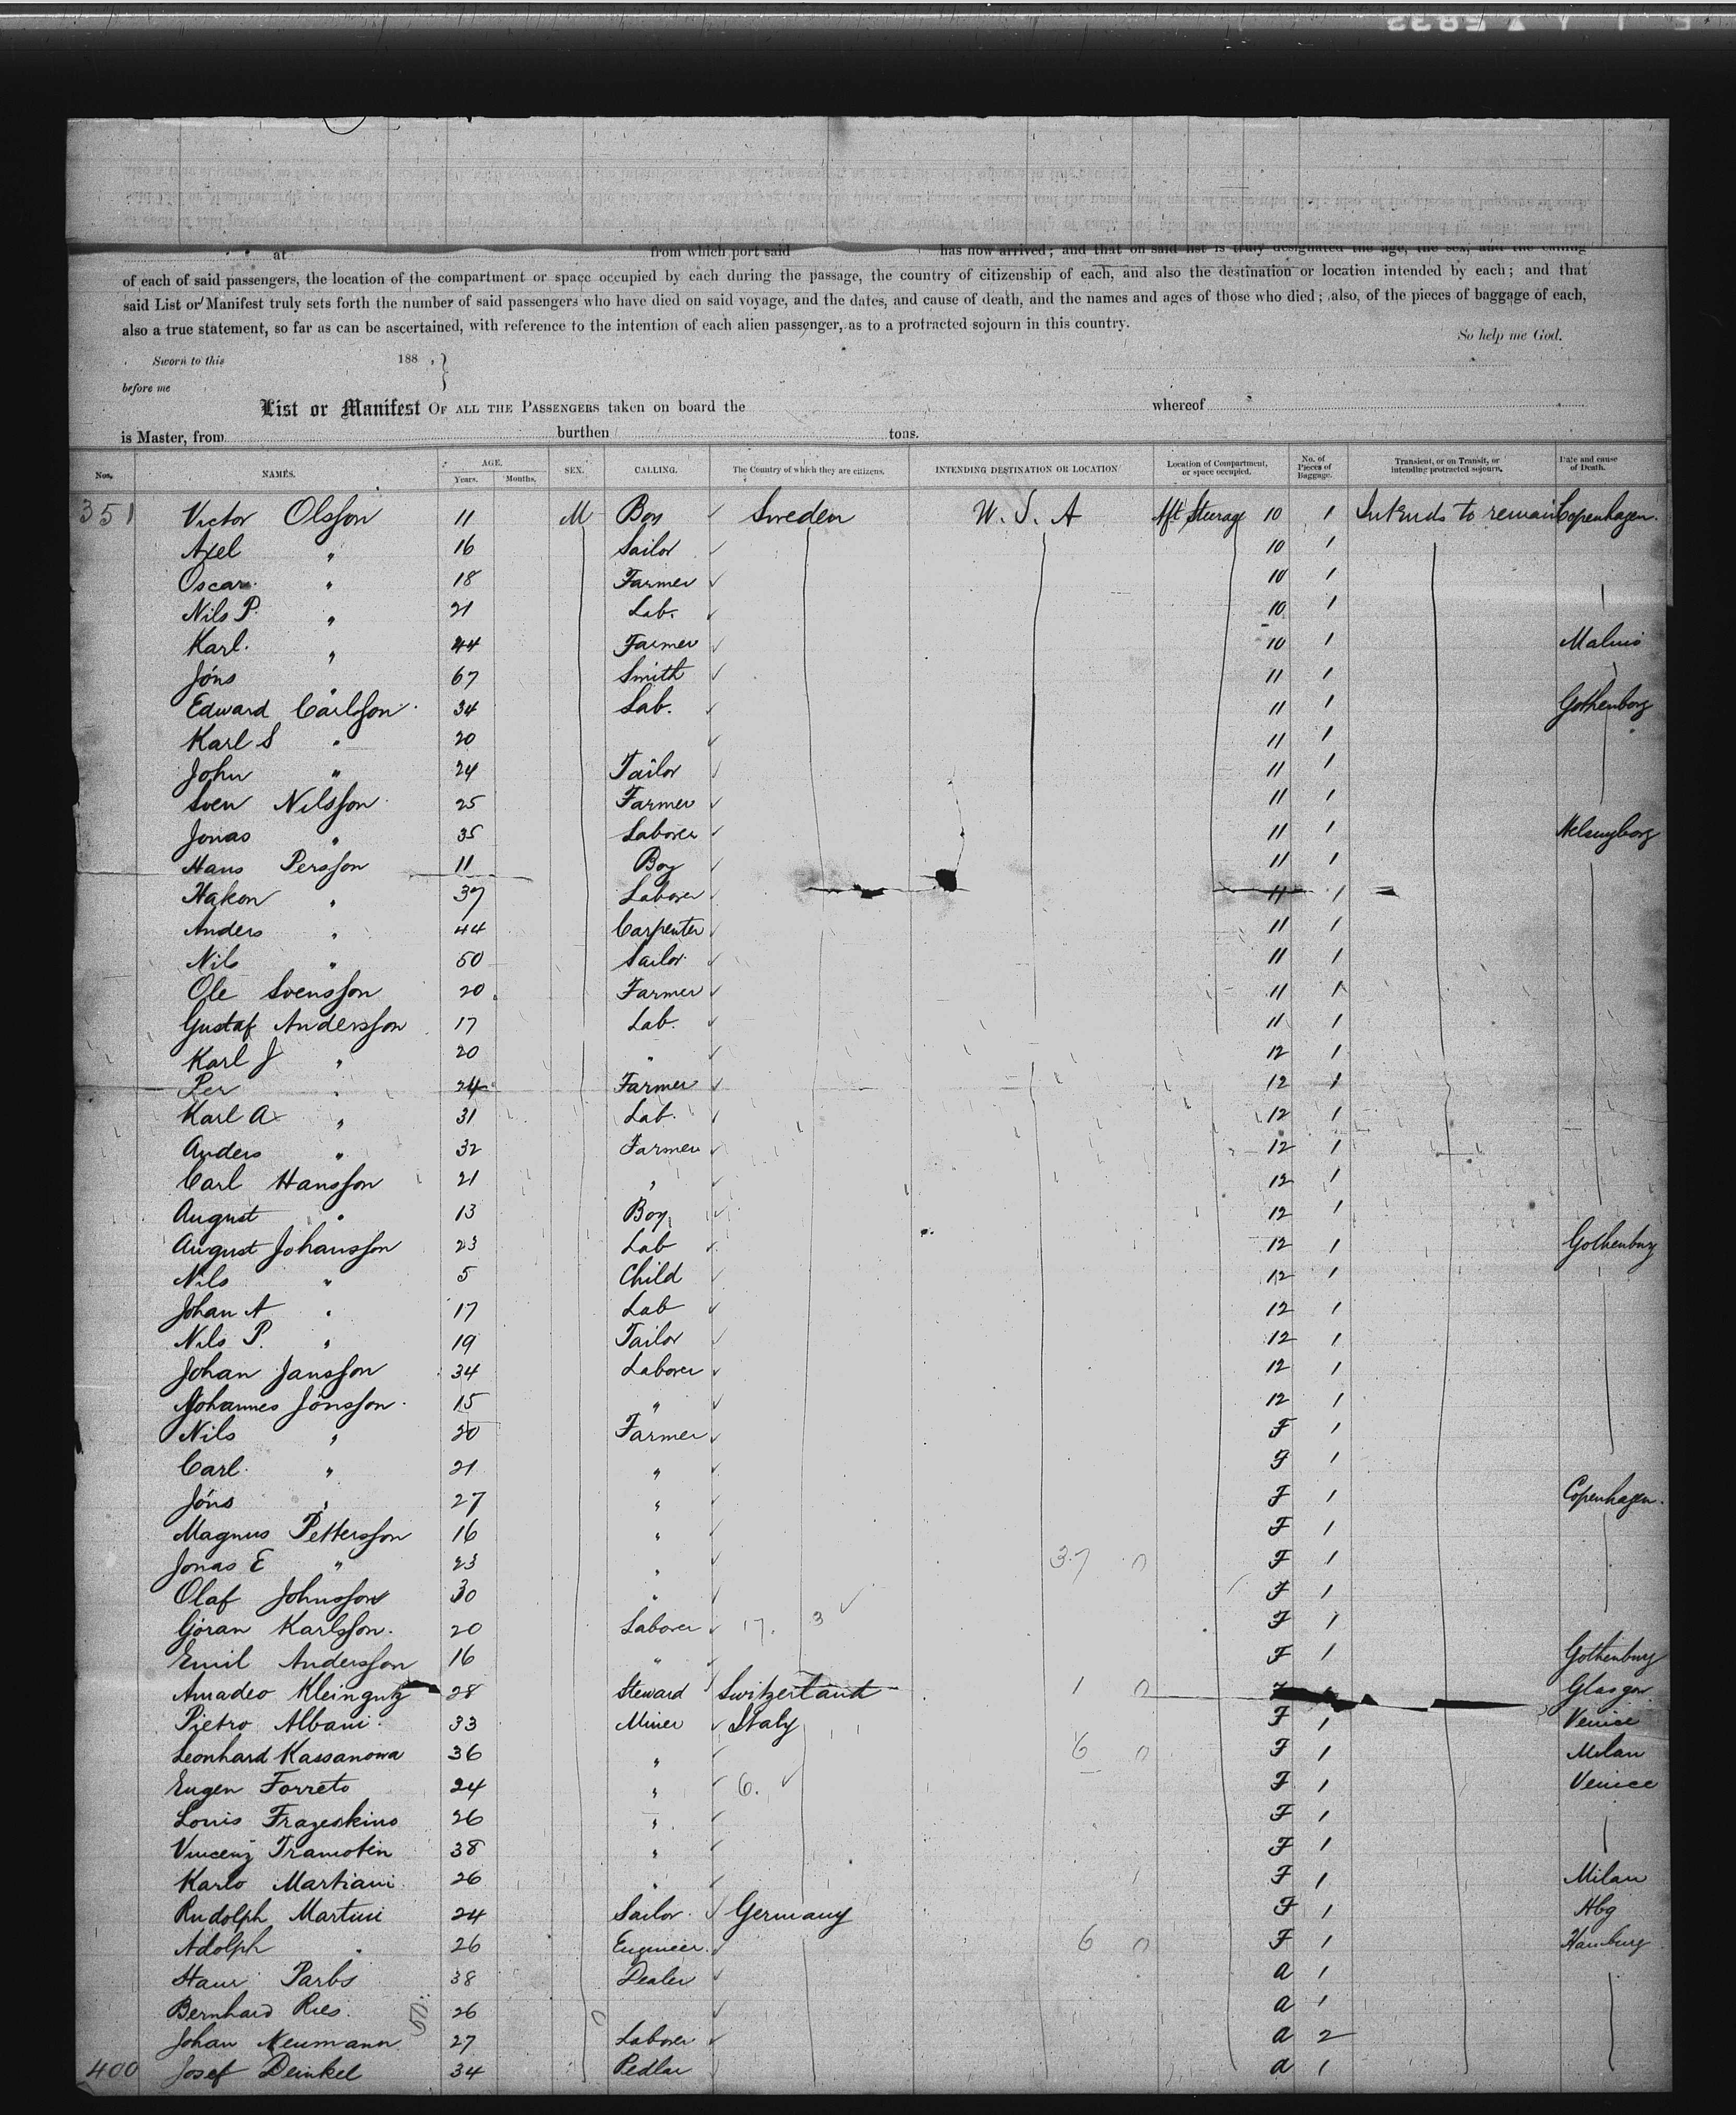 at from which port said has now arrived; and that on said list is truly designated the age, the sex, and the calling
of each of said passengers, the location of the compartment or space occupied by each during the passage, the country of citizenship of each, and also the destination or location intended by each; and that
said List or Manifest truly sets forth the number of said passengers who have died on said voyage, and the dates, and cause of death, and the names and ages of those who died; also, of the pieces of baggage of each,
also a true statement, so far as can be ascertained, with reference to the intention of each alien passenger, as to a protracted sojourn in this country.
So help me God.
Sworn to this 188 , }
before me
List or Manifest OF ALL THE PASSENGERS taken on board the whereof
is Master, from burthen tons.
Nos. NAMES. AGE. Years. Months. SEX. CALLING. The Country of which they are citizens. INTENDING DESTINATION OR LOCATION Location of Compartment, or space occupied. No. of Pieces of Baggage. Transient, or on Transit, or intending protracted sojourn. Date and cause of Death.
351 Victor Olsson 11 M Boy Sweden U. S. A Aft Steerage 10 1 Intends to remain Copenhagen.
Axel " 16 Sailor 10 1
Oscar " 18 Farmer 10 1
Nils P. " 21 Lab. 10 1
Karl. " 44 Farmer 10 1 Malmö
Jöns " 67 Smith 11 1
Edward Carlsson 34 Lab. 11 1 Gothenborg
Karl S " 20 11 1
John " 24 Tailor 11 1
Sven Nilsson 25 Farmer 11 1
Jonas " 35 Laborer 11 1 Helsingborg
Hans Persson 11 Boy 11 1
Hakon " 37 Laborer 11 1
Anders " 44 Carpenter 11 1
Nils " 50 Sailor 11 1
Ole Svensson 20 Farmer 11 1
Gustaf Andersson 17 Lab. 11 1
Karl J " 20 " 12 1
Per " 24 Farmer 12 1
Karl A " 31 Lab. 12 1
Anders " 32 Farmer 12 1
Carl Hansson 21 " 12 1
August " 13 Boy 12 1
August Johansson 23 Lab 12 1 Gothenburg
Nils " 5 Child 12 1
Johan A " 17 Lab 12 1
Nils P. " 19 Tailor 12 1
Johan Jansson 34 Laborer 12 1
Johannes Jönsson 15 " 12 1
Nils " 20 Farmer F 1
Carl " 21 " F 1
Jöns " 27 " F 1 Copenhagen.
Magnus Pettersson 16 " F 1
Jonas E " 23 " 37 0 F 1
Olaf Johnsson 30 " F 1
Göran Karlsson. 20 Laborer 17. 3 F 1
Emil Andersson 16 " F 1 Gothenburg
Amadeo Kleingutz 28 Steward Switzerland 1 0 Glasgow
Pietro Albani 33 Miner Italy F 1 Venice
Leonhard Kassanowa 36 " 6 0 F 1 Milan
Eugen Forreto 24 " 6. F 1 Venice
Louis Frazeskino 26 " F 1
Vincenz Tramotin 38 " F 1
Karlo Martiani 26 " F 1 Milan
Rudolph Martini 24 Sailor Germany F 1 Hbg
Adolph " 26 Engineer 6 0 F 1 Hamburg
Hans Parbs 38 Dealer a 1
Bernhard Ries. 50 26 a 1
Johan Neumann 27 Laborer a 2
400 Josef Deinkel 34 Pedlar a 1